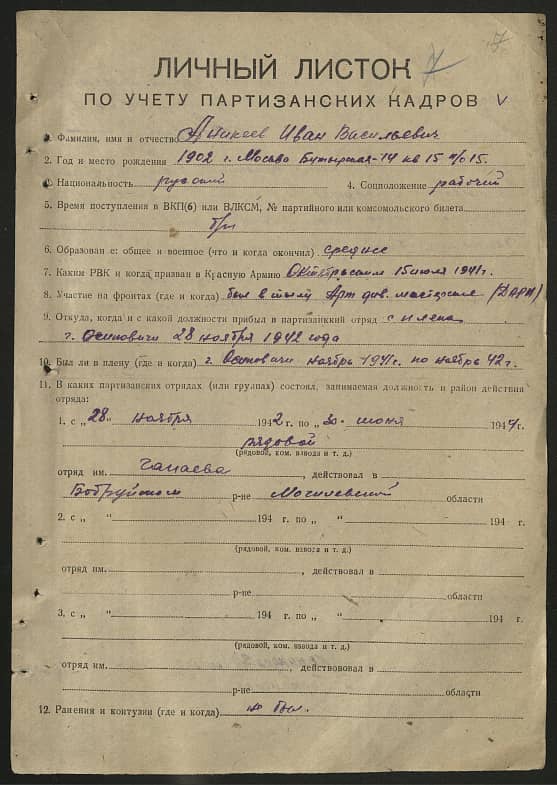 7
ЛИЧНЫЙ ЛИСТОК 7
ПО УЧЕТУ ПАРТИЗАНСКИХ КАДРОВ V
1. Фамилия, имя и отчество Аникеев Иван Васильевич
2. Год и место рождения 1902 г. Москва Бутырская-14 кв 15
3. Национальность русский 4. Соцположение рабочий
5. Время поступления в ВКП(б) или ВЛКСМ, № партийного или комсомольского билета
б/п
6. Образование: общее и военное (что и когда окончил) среднее
7. Каким РВК и когда призван в Красную Армию Октябрьским 15 июля 1941г.
8. Участие на фронтах (где и когда) был в тылу Арт див. мастерские (ДАРМ)
9. Откуда, когда и с какой должности прибыл в партизанский отряд с плена
г. Осиповичи 28 ноября 1942 года
10. Был ли в плену (где и когда) г. Осиповичи ноябрь 1941г. по ноябрь 42 г.
11. В каких партизанских отрядах (или группах) состоял, занимаемая должность и район действия
отряда:
1. с „28" ноября 1942 г. по „30" июня 1944г.
рядовой
(рядовой, ком. взвода и т. д.)
отряд им. Чапаева, действовал в
Бобруйском р-не Могилевской области
2. с „ " 194 г. по „ " 194 г.
(рядовой, ком. взвода и т. д.)
отряд им. , действовал в
р-не области
3. с „ " 194 г. по „ " 194 г.
(рядовой, ком. взвода и т. д.)
отряд им. , действовал в
р-не области
12. Ранения и контузии (где и когда) н был.